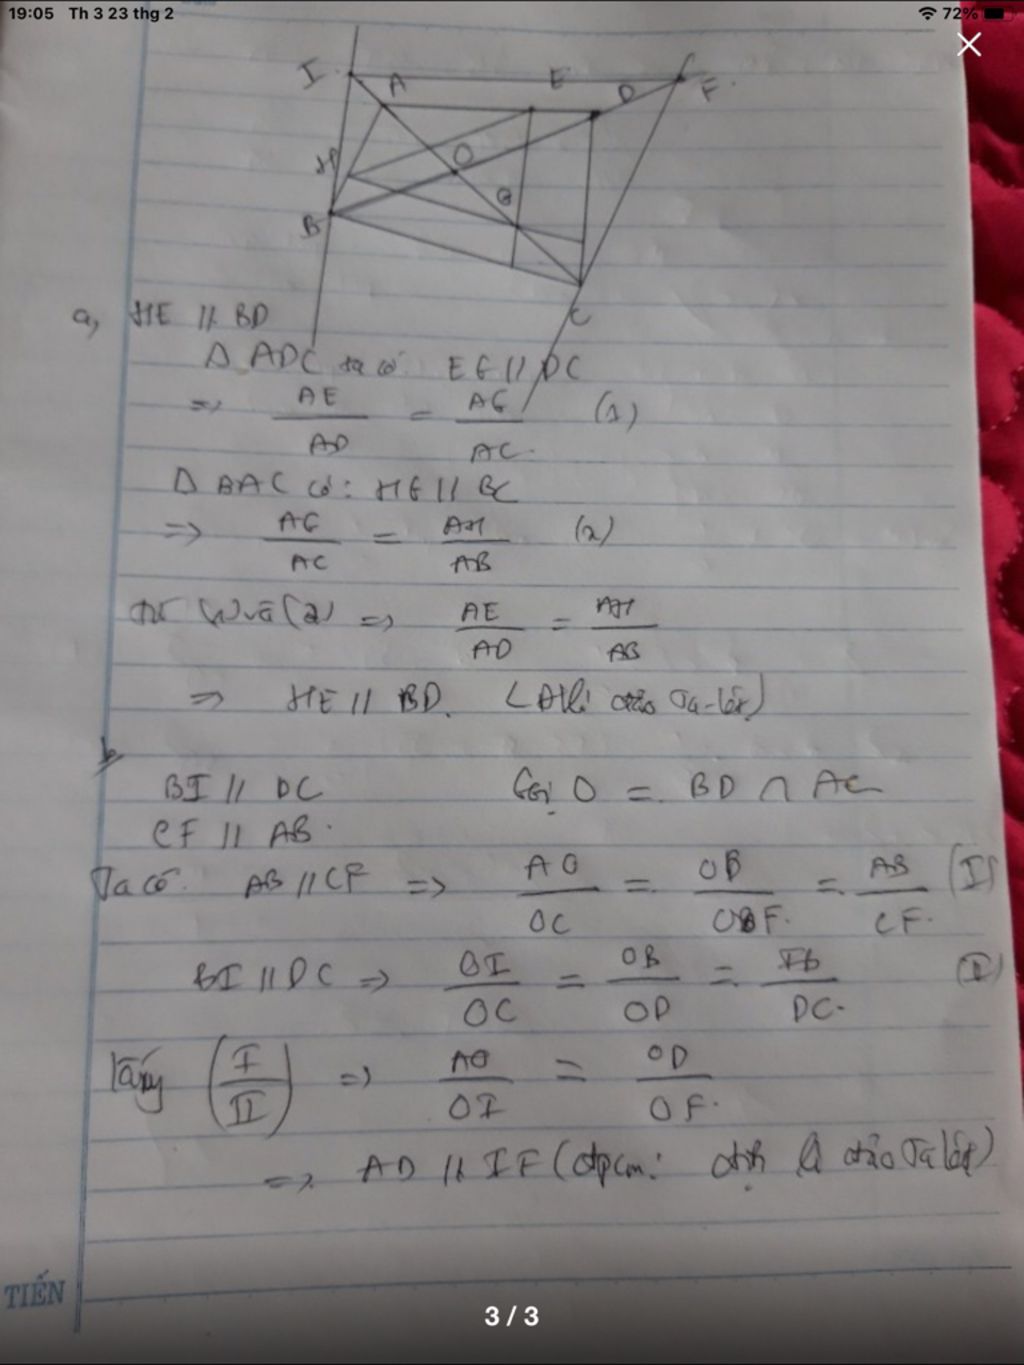 19:05 Th 3 23 thg 2 72%
I A E D F
H O G
B
C
a, HE // BD
Δ ADC ta có EG // DC
=> AE/AD = AG/AC (1)
Δ BAC có: HG // BC
=> AG/AC = AH/AB (2)
Từ (1) và (2) => AE/AD = AH/AB
=> HE // BD. (Đlí đảo Ta-lét)
b,
BI // DC Gọi O = BD ∩ AC
CF // AB.
Ta có. AB // CF => AO/OC = OB/OF. = AB/CF. (I)
BI // DC => OI/OC = OB/OD = IB/DC. (II)
Lấy (I/II) => AO/OI = OD/OF.
=> AD // IF (đpcm: định lí đảo Ta lét)
TIẾN
3 / 3